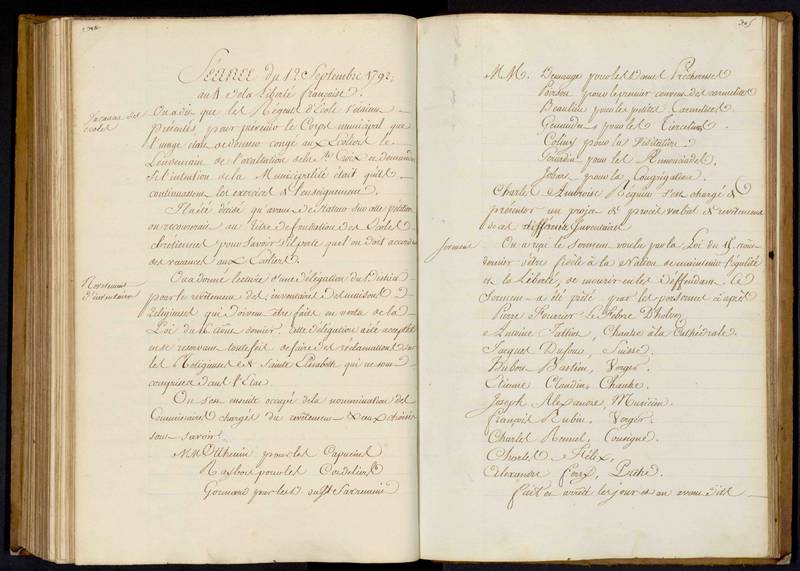 Séance du 12 Septembre 1792
au 4 de la liberté française.
Vacance des
écoles
On a dit que les Régents d'école s'étaient
présentés pour prévenir le Corps municipal que
l'usage était de donner congé aux Ecoliers le
lendemain de l'exaltation de la Ste Croix en demandant
si l'intention de la Municipalité était qu'ils
continuassent les exercices & l'enseignement.
Il a été décidé qu'avant de statuer sur cette pétition
on recourrait au titre de fondation des Ecoles
chrétiennes pour savoir s'il porte que l'on doit accorder
des vacances aux Ecoliers.
Revêtement
d'inventaires
On a donné lecture d'une délégation du District
pour le revêtement des inventaires des maisons
Religieuses qui doivent être faits en vertu de la
Loi du août dernier. Cette délégation a été acceptée
en se réservant toutefois de faire des réclamations sur
les Religieuses de Sainte Elisabeth qui ne sont
comprises dans l'Etat.
On s'est ensuite occupé de la nomination des
Commissaires chargés du revêtement & eux choisis
sont savoir
MM Othenin pour les Capucins
pour les Cordeliers
Gormand pour les
305
MM. Demange pour les Dames Prêcheresses
Poirson pour le premier couvent des carmelites
Beaulieu pour les petites Carmelites
pour les Tiercelins
Colny pour la Visitation
Gaudin pour les Annonciades
Jobart pour la Congrégation.
Charles Ambroise Réguier s'est chargé de
présenter un projet de procès verbal de revêtement
de ces différents Inventaires
Serment
On a reçu le Serment voulu par la Loi du 15 août
dernier d'être fidèle à la Nation de maintenir l'égalité
et la liberté, ou mourir en les défendant. Ce
Serment a été prêté par les personnes ci après
Pierre Fourrier Le Febvre
Antoine Chantre à la Cathédrale.
Jacques Dufour, Suisse.
Dubois Bastien, Verger.
Etienne Claudin, Chantre.
Joseph Alexandre, Musicien.
François Rubin, Verger.
Charles Consigne.
Charles Félix,
Alexandre
fait et arrêté les jour et an avant dits